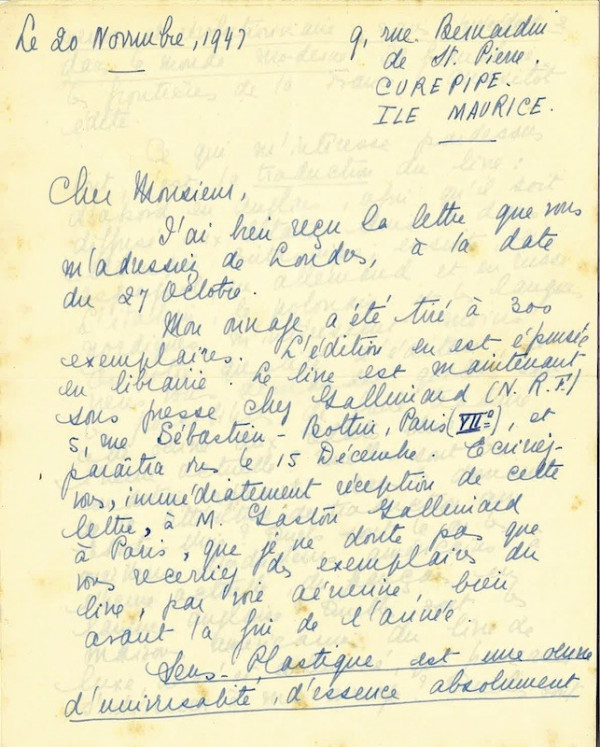 Le 20 Novembre, 1947
9, rue Bernardin
de St. Pierre.
CUREPIPE.
ILE MAURICE.
Cher Monsieur,
J'ai bien reçu la lettre que vous
m'adressiez de Londres, à la date
du 27 Octobre.
Mon ouvrage a été tiré à 300
exemplaires. L'édition en est épuisée
en librairie. Le livre est maintenant
sous presse chez Gallimard (N.R.F.)
5, rue Sébastien-Bottin, Paris (VIIº), et
paraîtra vers le 15 Décembre. Ecrivez-
vous, immédiatement réception de cette
lettre, à M. Gaston Gallimard
à Paris, que je ne doute pas que
vous receviez des exemplaires du
livre, par voie aérienne, bien
avant la fin de l'année.
Sens-Plastique est une œuvre
d'universalité, d'essence absolument